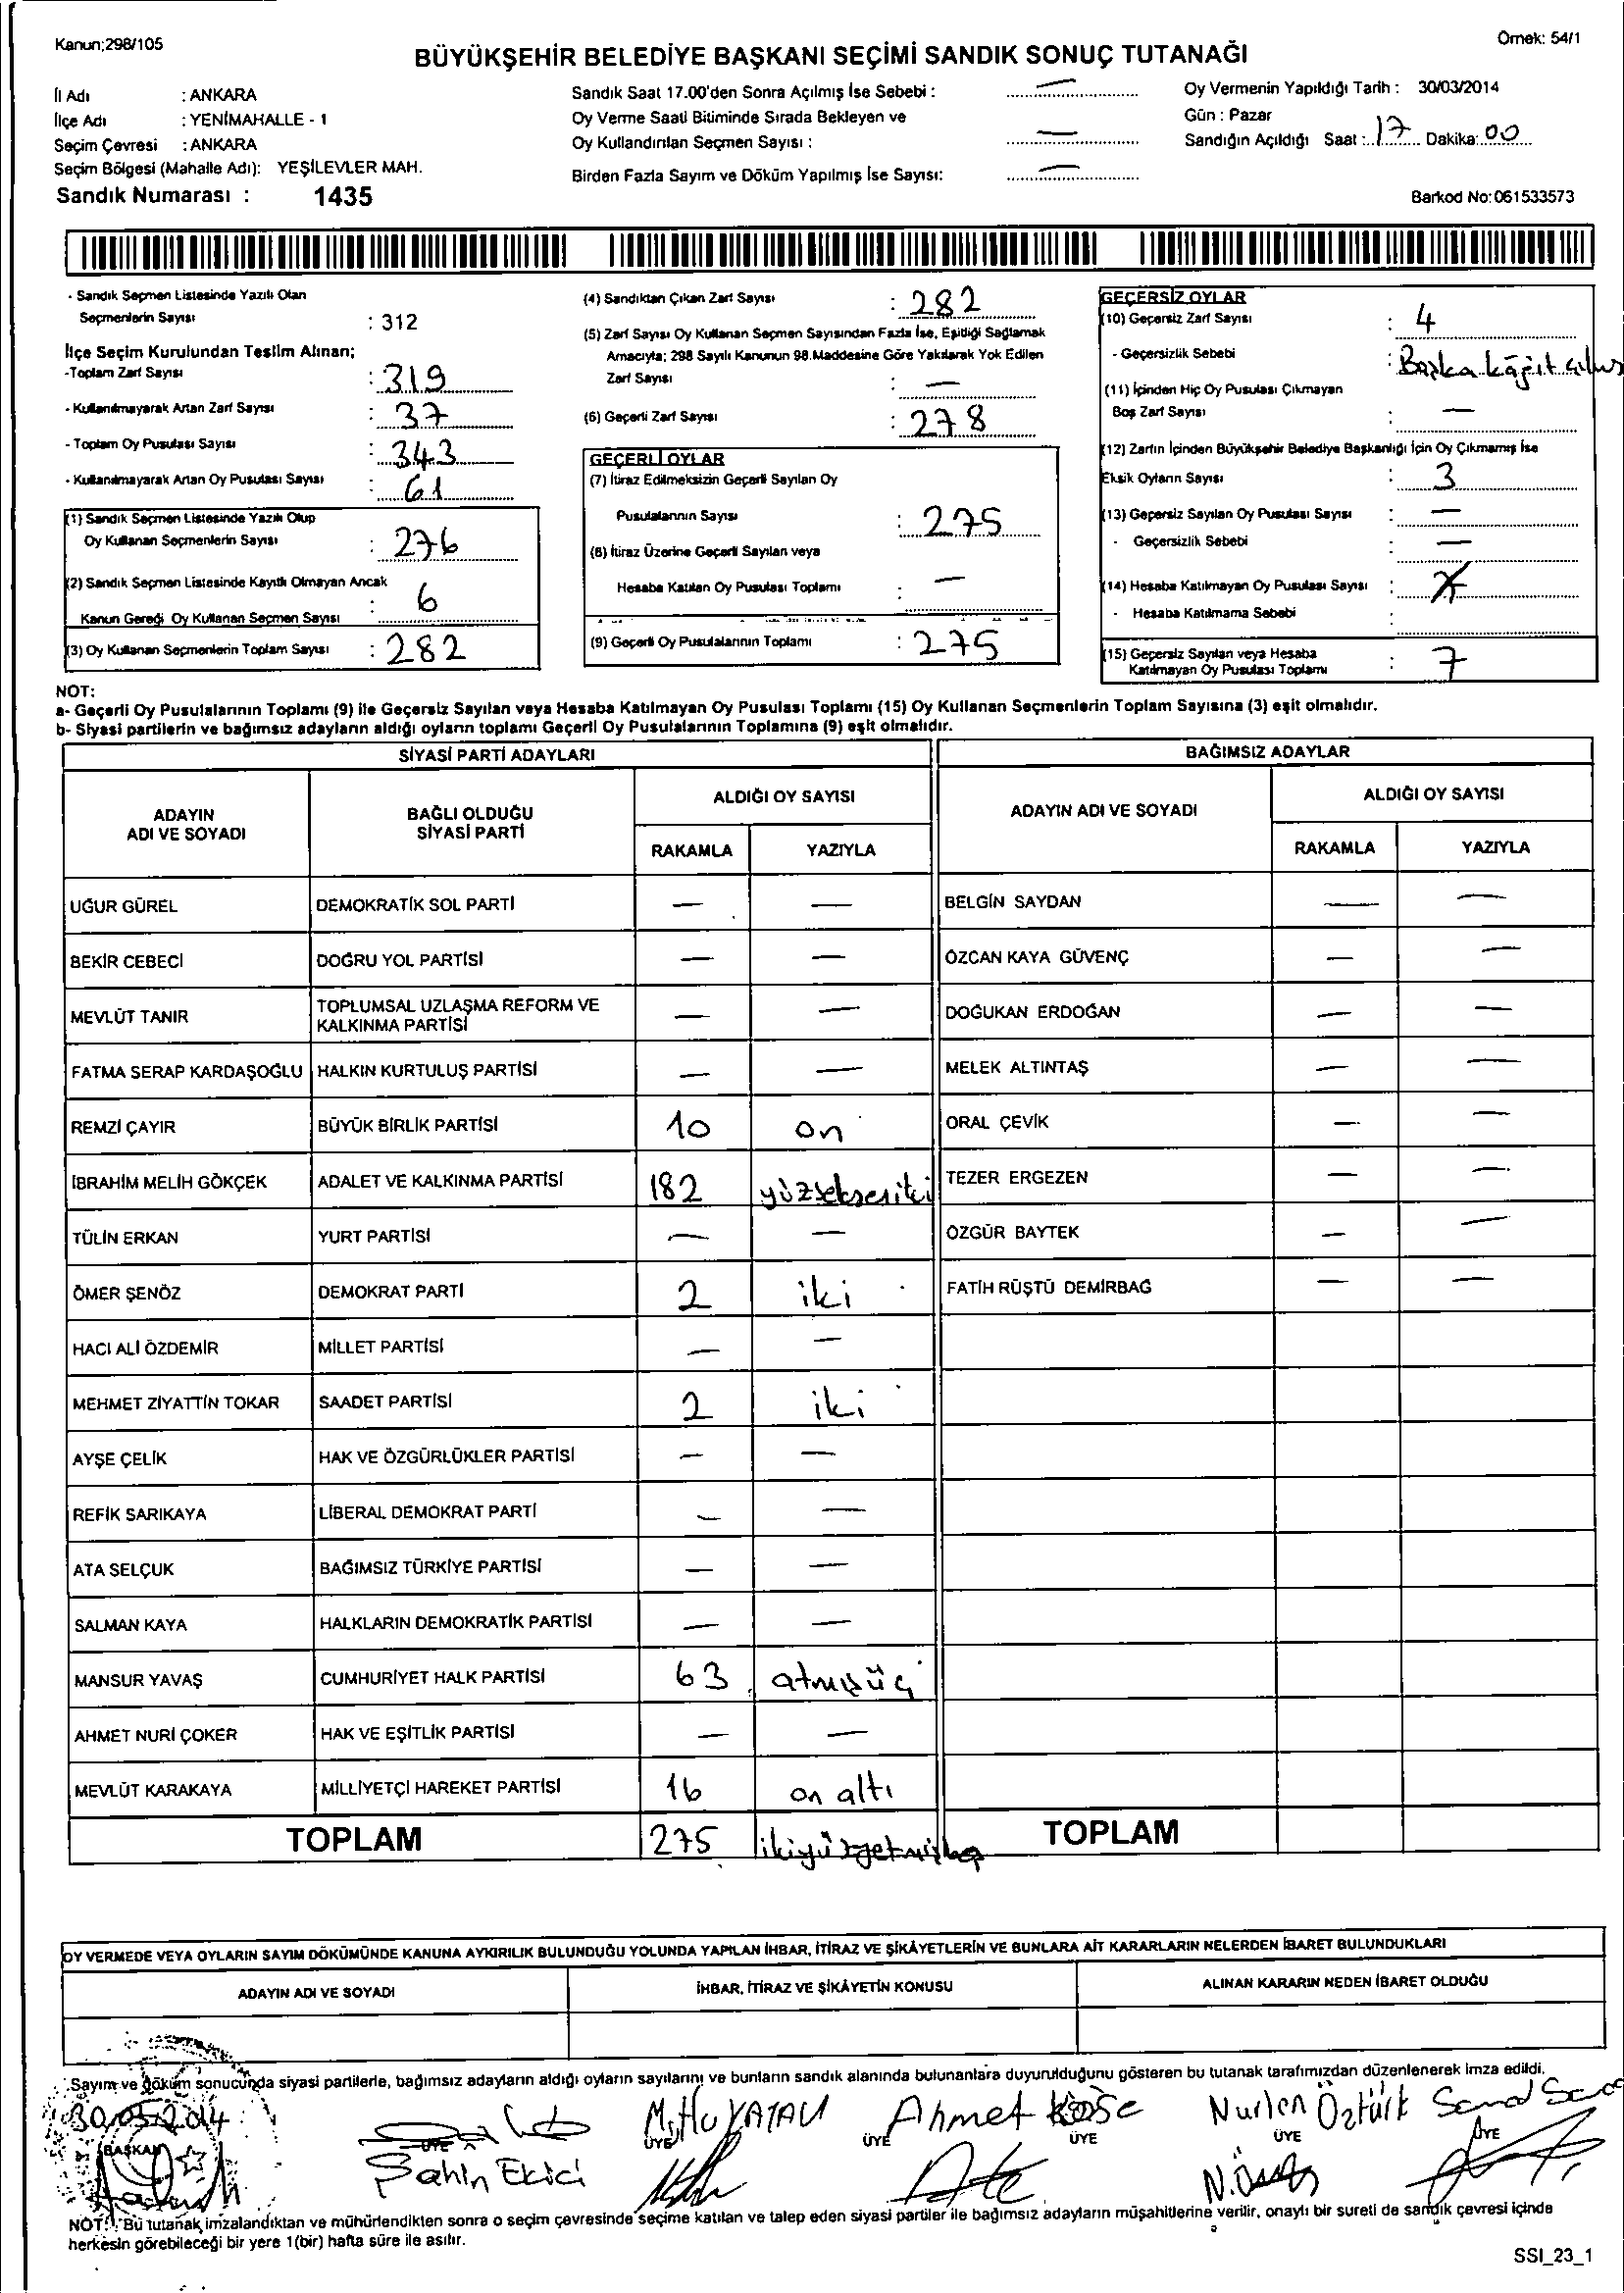 Kanun;298/105
Örnek: 54/1
BÜYÜKŞEHİR BELEDİYE BAŞKANI SEÇİMİ SANDIK SONUÇ TUTANAĞI
İl Adı : ANKARA
İlçe Adı : YENİMAHALLE - 1
Seçim Çevresi : ANKARA
Seçim Bölgesi (Mahalle Adı): YEŞİLEVLER MAH.
Sandık Numarası : 1435
Sandık Saat 17.00'den Sonra Açılmış İse Sebebi : —
Oy Verme Saati Bitiminde Sırada Bekleyen ve
Oy Kullandırılan Seçmen Sayısı : —
Birden Fazla Sayım ve Döküm Yapılmış İse Sayısı: —
Oy Vermenin Yapıldığı Tarih : 30/03/2014
Gün : Pazar
Sandığın Açıldığı Saat : 17 Dakika: 00
Barkod No:061533573
- Sandık Seçmen Listesinde Yazılı Olan
Seçmenlerin Sayısı : 312
İlçe Seçim Kurulundan Teslim Alınan;
-Toplam Zarf Sayısı : 319
- Kullanılmayarak Artan Zarf Sayısı : 37
- Toplam Oy Pusulası Sayısı : 343
- Kullanılmayarak Artan Oy Pusulası Sayısı : 61
(1) Sandık Seçmen Listesinde Yazılı Olup
Oy Kullanan Seçmenlerin Sayısı : 276
(2) Sandık Seçmen Listesinde Kayıtlı Olmayan Ancak
Kanun Gereği Oy Kullanan Seçmen Sayısı : 6
(3) Oy Kullanan Seçmenlerin Toplam Sayısı : 282
(4) Sandıktan Çıkan Zarf Sayısı : 282
(5) Zarf Sayısı Oy Kullanan Seçmen Sayısından Fazla İse, Eşitliği Sağlamak
Amacıyla; 298 Sayılı Kanunun 98.Maddesine Göre Yakılarak Yok Edilen
Zarf Sayısı : —
(6) Geçerli Zarf Sayısı : 278
GEÇERLİ OYLAR
(7) İtiraz Edilmeksizin Geçerli Sayılan Oy
Pusulalarının Sayısı : 275
(8) İtiraz Üzerine Geçerli Sayılan veya
Hesaba Katılan Oy Pusulası Toplamı : —
(9) Geçerli Oy Pusulalarının Toplamı : 275
GEÇERSİZ OYLAR
(10) Geçersiz Zarf Sayısı : 4
- Geçersizlik Sebebi : Başka kâğıt
(11) İçinden Hiç Oy Pusulası Çıkmayan
Boş Zarf Sayısı : —
(12) Zarfın İçinden Büyükşehir Belediye Başkanlığı İçin Oy Çıkmamış İse
Eksik Oyların Sayısı : 3
(13) Geçersiz Sayılan Oy Pusulası Sayısı : —
- Geçersizlik Sebebi : —
(14) Hesaba Katılmayan Oy Pusulası Sayısı :
- Hesaba Katılmama Sebebi :
(15) Geçersiz Sayılan veya Hesaba
Katılmayan Oy Pusulası Toplamı : 7
NOT:
a- Geçerli Oy Pusulalarının Toplamı (9) ile Geçersiz Sayılan veya Hesaba Katılmayan Oy Pusulası Toplamı (15) Oy Kullanan Seçmenlerin Toplam Sayısına (3) eşit olmalıdır.
b- Siyasi partilerin ve bağımsız adayların aldığı oyların toplamı Geçerli Oy Pusulalarının Toplamına (9) eşit olmalıdır.
SİYASİ PARTİ ADAYLARI
BAĞIMSIZ ADAYLAR
ADAYIN
ADI VE SOYADI
BAĞLI OLDUĞU
SİYASİ PARTİ
ALDIĞI OY SAYISI
RAKAMLA YAZIYLA
ADAYIN ADI VE SOYADI
ALDIĞI OY SAYISI
RAKAMLA YAZIYLA
UĞUR GÜREL DEMOKRATİK SOL PARTİ — — BELGİN SAYDAN — —
BEKİR CEBECİ DOĞRU YOL PARTİSİ — — ÖZCAN KAYA GÜVENÇ — —
MEVLÜT TANIR TOPLUMSAL UZLAŞMA REFORM VE
KALKINMA PARTİSİ — — DOĞUKAN ERDOĞAN — —
FATMA SERAP KARDAŞOĞLU HALKIN KURTULUŞ PARTİSİ — — MELEK ALTINTAŞ — —
REMZİ ÇAYIR BÜYÜK BİRLİK PARTİSİ 10 on ORAL ÇEVİK — —
İBRAHİM MELİH GÖKÇEK ADALET VE KALKINMA PARTİSİ 182 yüzsekseniki TEZER ERGEZEN — —
TÜLİN ERKAN YURT PARTİSİ — — ÖZGÜR BAYTEK — —
ÖMER ŞENÖZ DEMOKRAT PARTİ 2 iki FATİH RÜŞTÜ DEMİRBAĞ — —
HACI ALİ ÖZDEMİR MİLLET PARTİSİ — —
MEHMET ZİYATTİN TOKAR SAADET PARTİSİ 2 iki
AYŞE ÇELİK HAK VE ÖZGÜRLÜKLER PARTİSİ — —
REFİK SARIKAYA LİBERAL DEMOKRAT PARTİ — —
ATA SELÇUK BAĞIMSIZ TÜRKİYE PARTİSİ — —
SALMAN KAYA HALKLARIN DEMOKRATİK PARTİSİ — —
MANSUR YAVAŞ CUMHURİYET HALK PARTİSİ 63 atmışüç
AHMET NURİ ÇOKER HAK VE EŞİTLİK PARTİSİ — —
MEVLÜT KARAKAYA MİLLİYETÇİ HAREKET PARTİSİ 16 on altı
TOPLAM 275 ikiyüzyetmişbeş TOPLAM
OY VERMEDE VEYA OYLARIN SAYIM DÖKÜMÜNDE KANUNA AYKIRILIK BULUNDUĞU YOLUNDA YAPILAN İHBAR, İTİRAZ VE ŞİKÂYETLERİN VE BUNLARA AİT KARARLARIN NELERDEN İBARET BULUNDUKLARI
ADAYIN ADI VE SOYADI İHBAR, İTİRAZ VE ŞİKÂYETİN KONUSU ALINAN KARARIN NEDEN İBARET OLDUĞU
Sayım ve döküm sonucunda siyasi partilerle, bağımsız adayların aldığı oyların sayılarını ve bunların sandık alanında bulunanlara duyurulduğunu gösteren bu tutanak tarafımızdan düzenlenerek imza edildi.
30/03/2014 Ahmet Köse Nurlen Öztürk
BAŞKAN ÜYE ÜYE ÜYE ÜYE ÜYE ÜYE
Şahin Ekici
NOT: Bu tutanak imzalandıktan ve mühürlendikten sonra o seçim çevresinde seçime katılan ve talep eden siyasi partiler ile bağımsız adayların müşahitlerine verilir, onaylı bir sureti de sandık çevresi içinde
herkesin görebileceği bir yere 1(bir) hafta süre ile asılır.
SSI_23_1